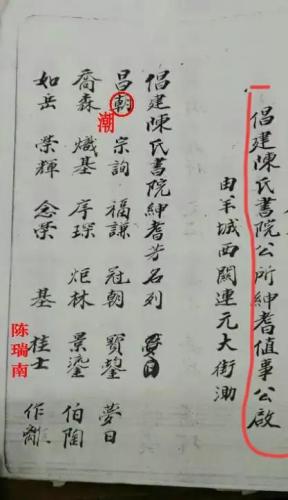 倡建陳氏書院公所紳耆值事公啟
由羊城西關連元大街泐
倡建陳氏書院紳耆芳名列
昌朝 宗詢 福謙 冠朝 寶鋆 夢日
潮
喬森 熾基 序琛 炬林 景鎏 伯陶
如岳 榮輝 念榮 基 桂士 作離
陈瑞南